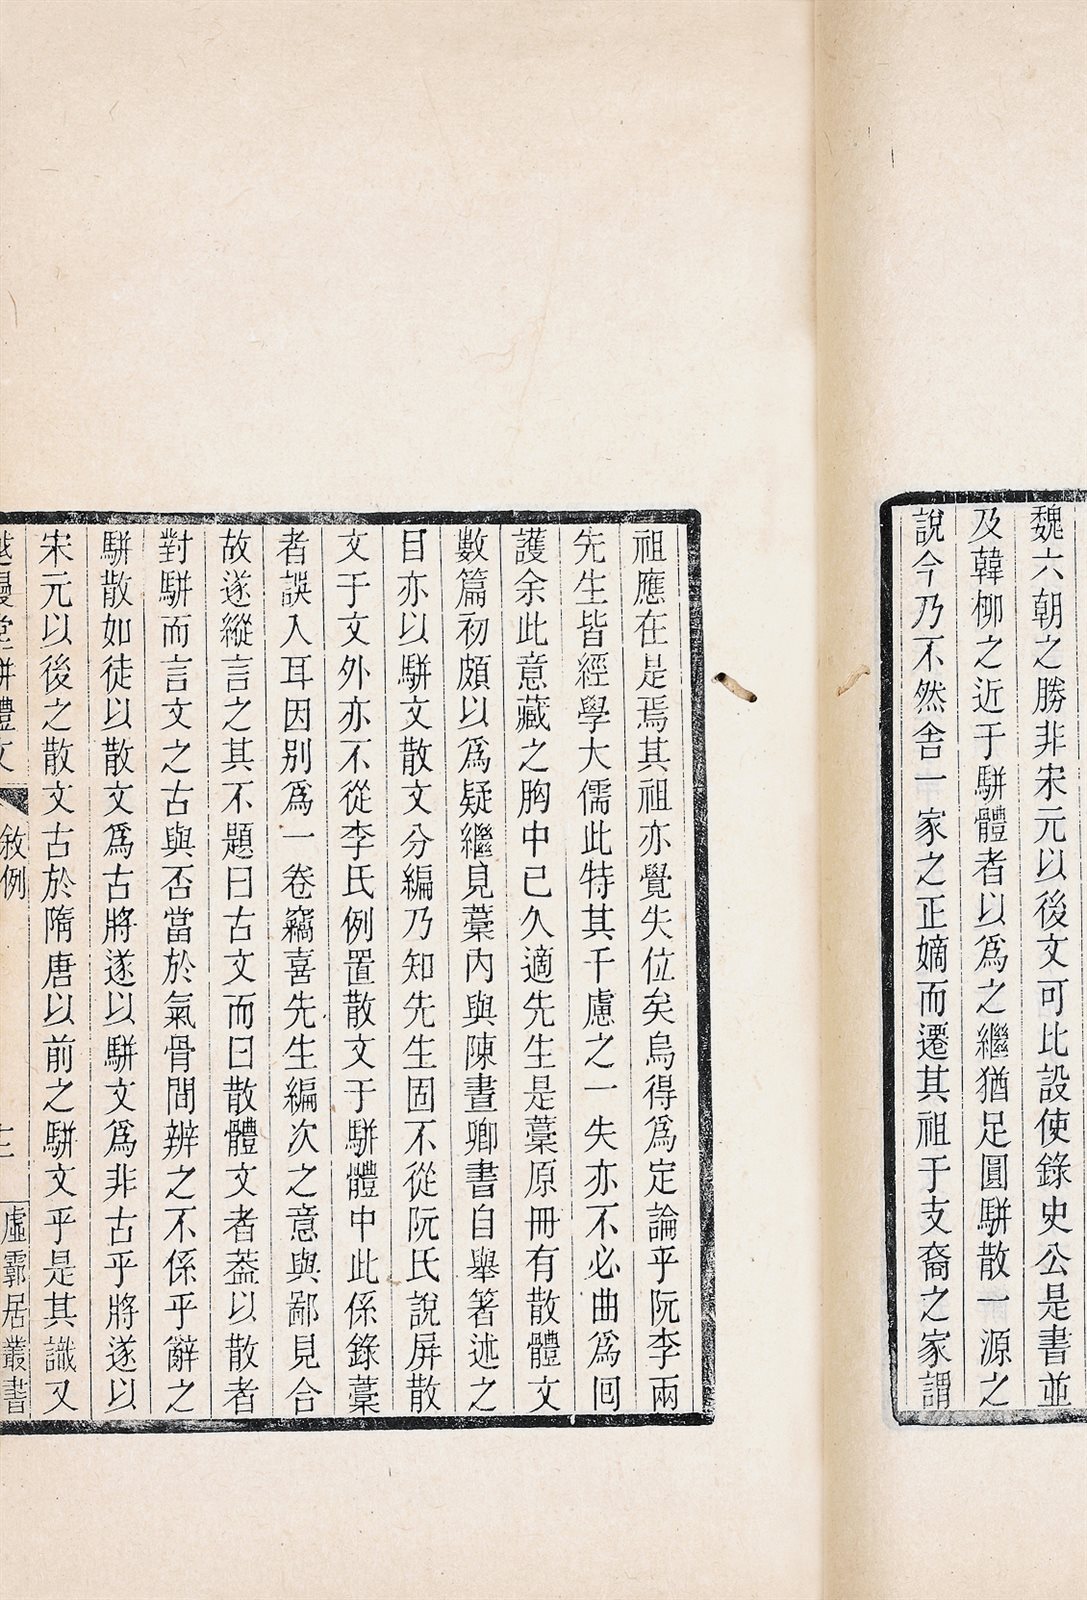 魏六朝之勝非宋元以後文可比設使錄史公是書並
及韓柳之近于駢體者以爲之繼猶足圓駢散一源之
說今乃不然舍一家之正嫡而遷其祖于支裔之家謂
祖應在是焉其祖亦覺失位矣烏得爲定論乎阮李兩
先生皆經學大儒此特其千慮之一失亦不必曲爲回
護余此意藏之胸中已久適先生是藳原冊有散體文
數篇初頗以爲疑繼見藳內與陳晝卿書自舉箸述之
目亦以駢文散文分編乃知先生固不從阮氏說屏散
文于文外亦不從李氏例置散文于駢體中此係錄藳
者誤入耳因别爲一卷竊喜先生編次之意與鄙見合
故遂縱言之其不題曰古文而曰散體文者葢以散者
對駢而言文之古與否當於氣骨間辨之不係乎辭之
駢散如徒以散文爲古將遂以駢文爲非古乎將遂以
宋元以後之散文古於隋唐以前之駢文乎是其識又
越縵堂駢體文
敘例
虛霩居叢書